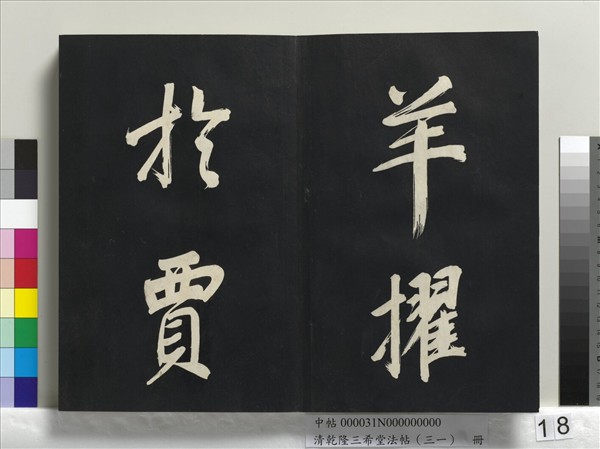 羊擢
於賈
中帖 000031N000000000
清乾隆三希堂法帖（三一） 冊
18